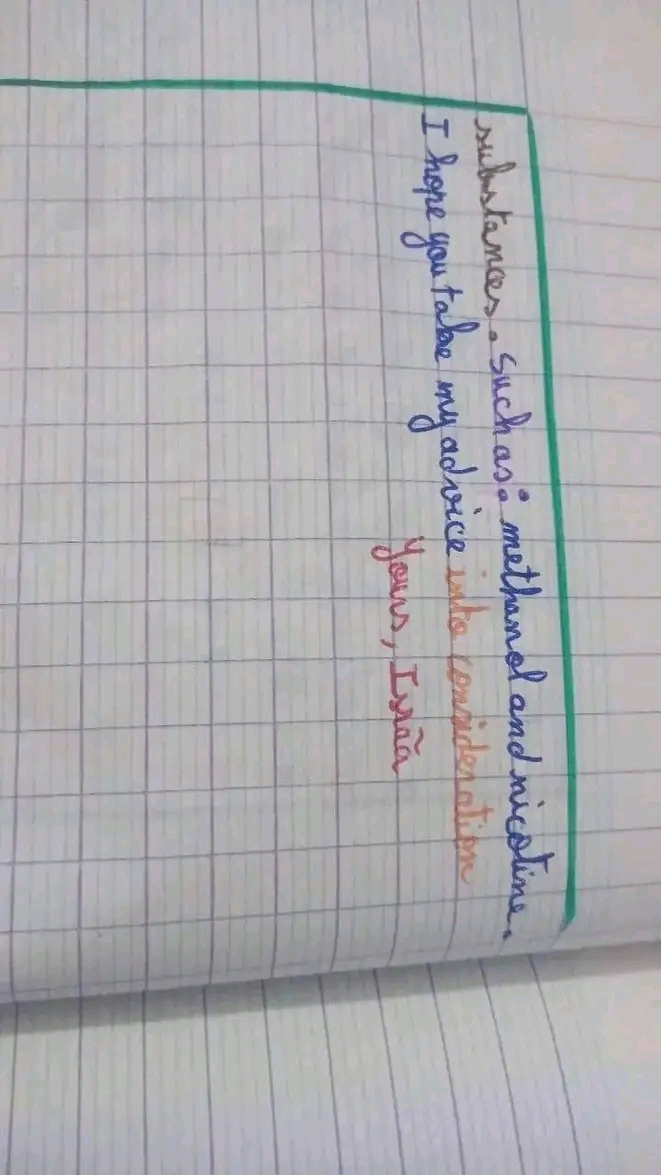 substances. such as: methanol and nicotine.
I hope you take my advice into consideration
yours, Israa